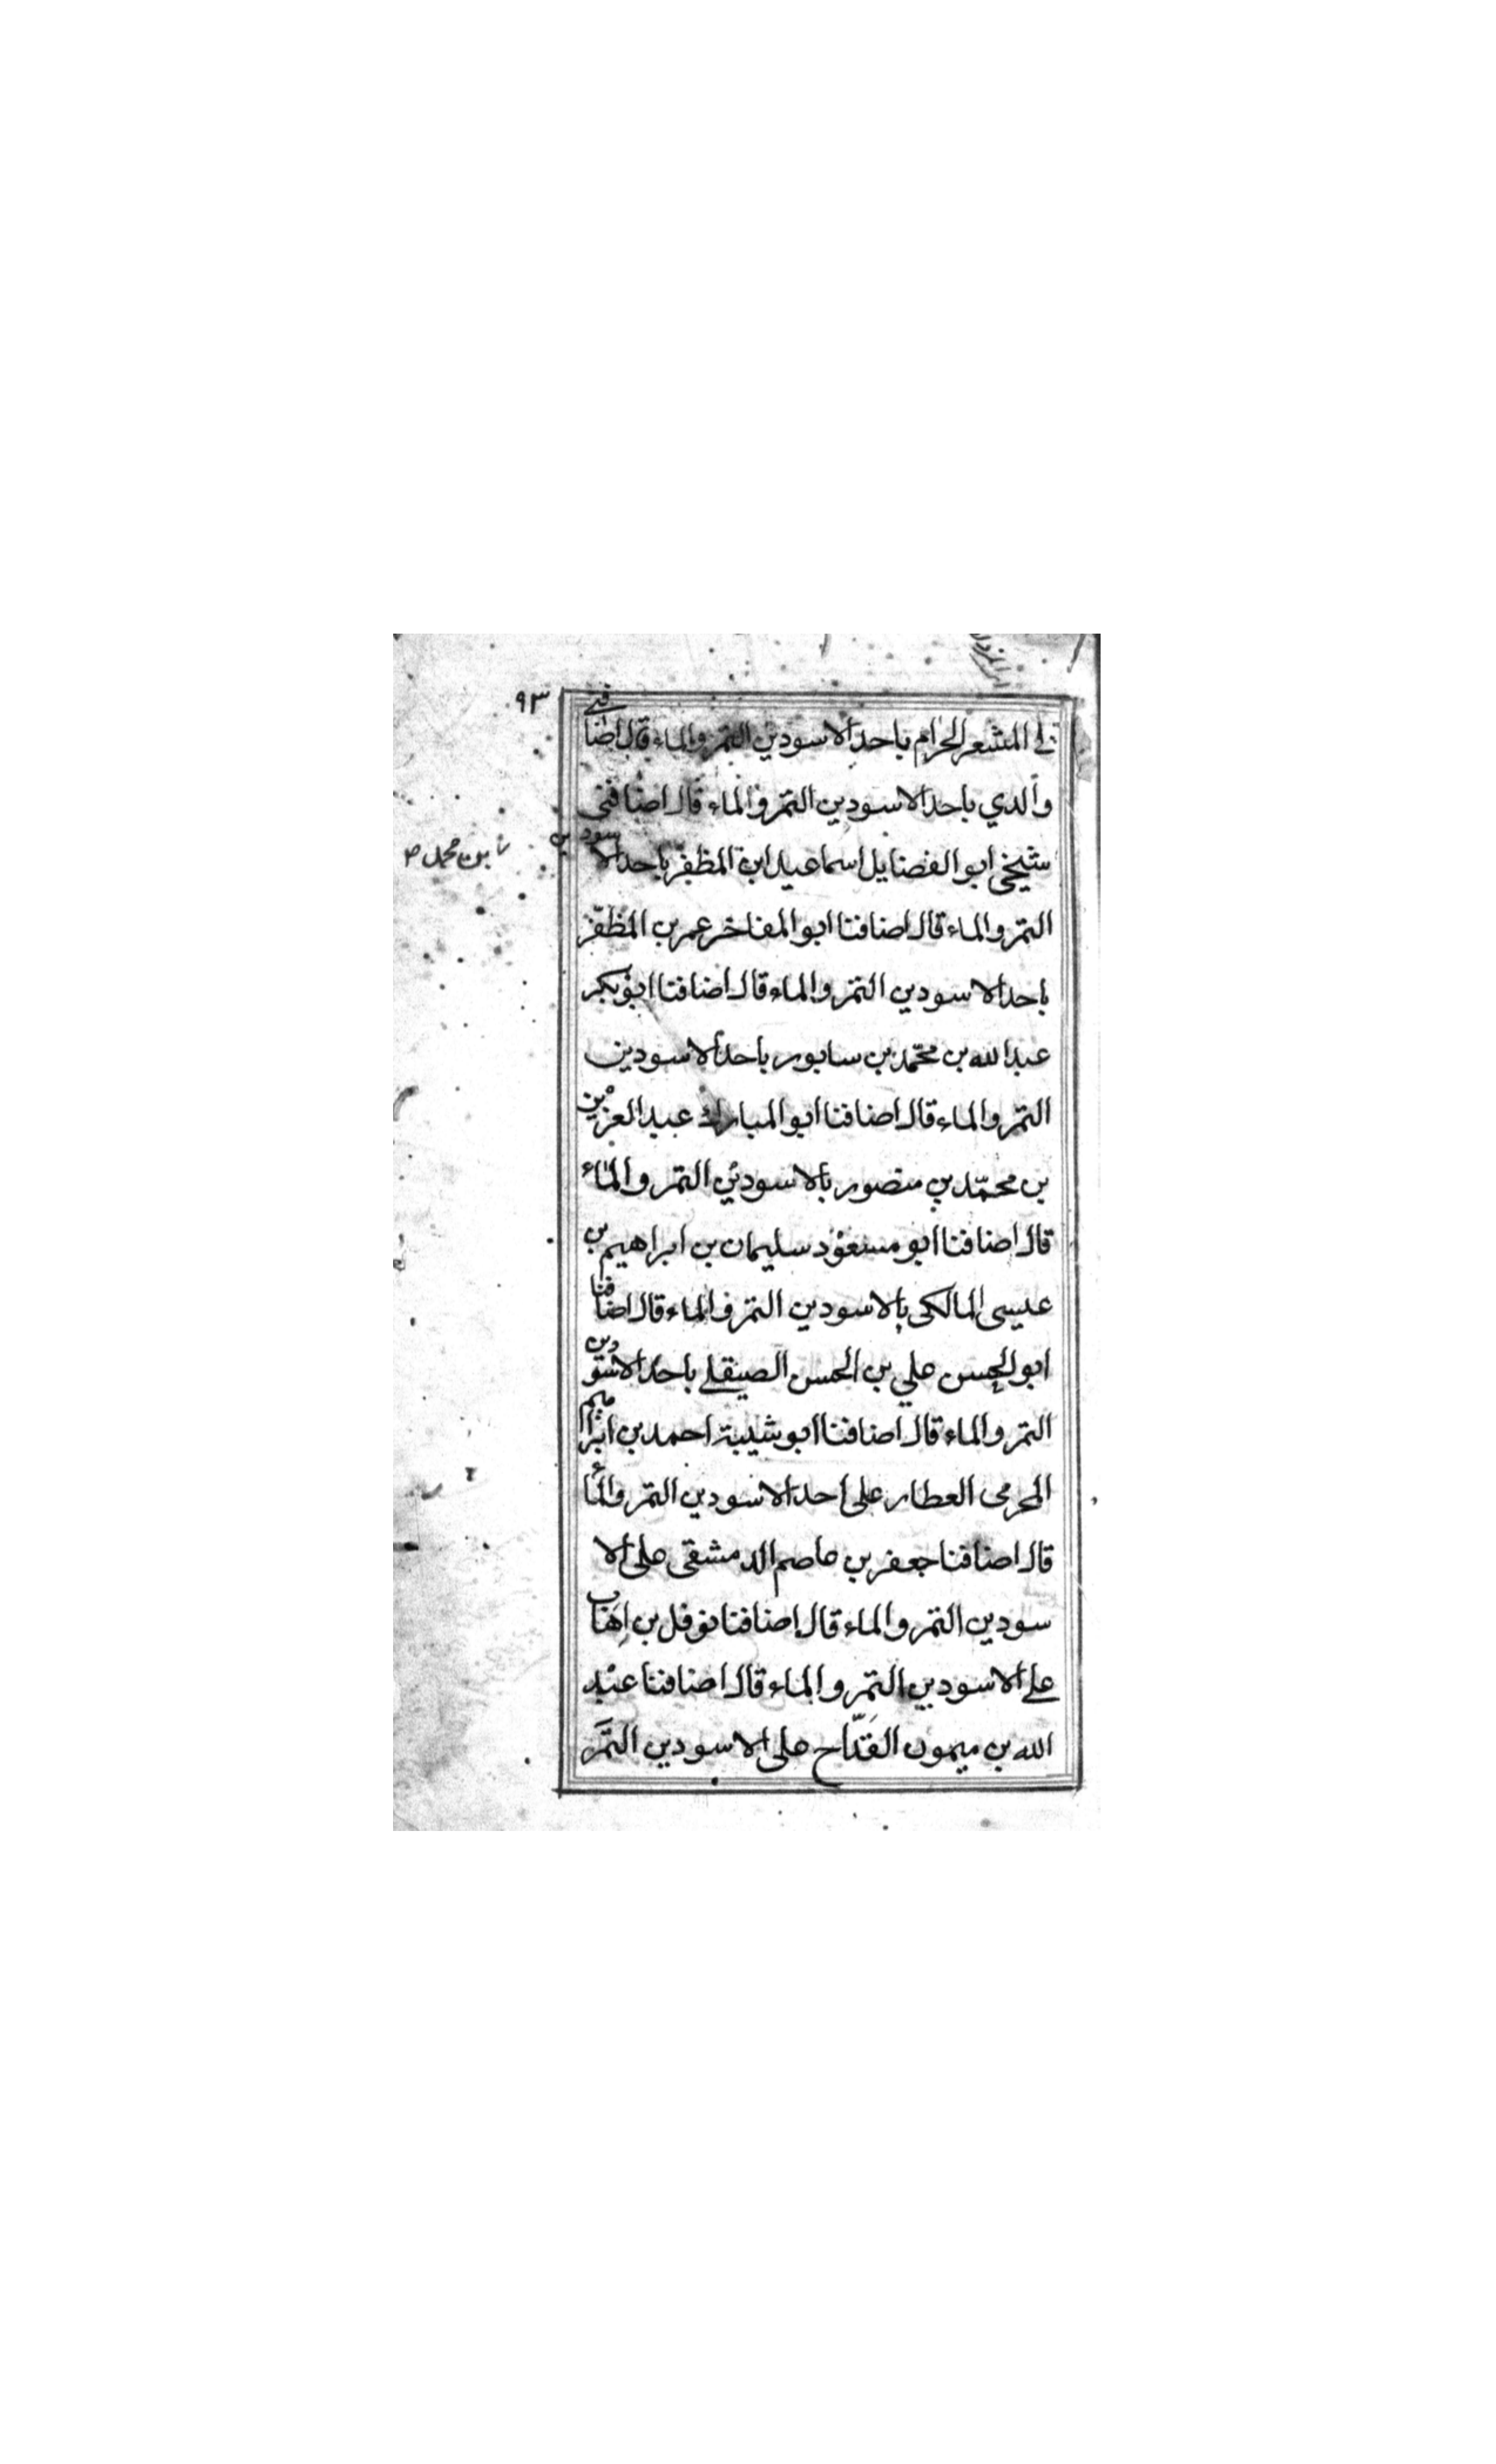 ٩٣
في المشعر الحرام باحد الاسودين التمر والماء قال اضافني
والدي باحد الاسودين التمر والماء قال اضافنى
شيخى ابو الفضايل اسماعيل ابن المظفر باحد الاسودين
بن محمد ص
التمر والماء قال اضافنا ابو المفاخر عمر بن المظفّر
باحد الاسودين التمر والماء قال اضافنا ابو بكر
عبد الله بن محمّد بن سابور باحد الاسودين
التمر والماء قال اضافنا ابو المبارك عبد العزيز بن
بن محمّد بن منصور بالاسودين التمر والماء
قال اضافنا ابو مسعود سليمان بن ابراهيم بن
عيسى المالكى بالاسودين التمر والماء قال اضافنا
ابو الحسن علي بن الحسن الصيقلے باحد الاسودين
التمر والماء قال اضافنا ابو شيبة احمد بن ابراهيم
المخرمى العطار على احد الاسودين التمر والماء
قال اضافنا جعفر بن عاصم الدمشقى على الا
سودين التمر والماء قال اضافنا نوفل بن اِهَاب
علے الاسودين التمر والماء قال اضافنا عبد
الله بن ميمون القَدّاح على الاسودين التمَر